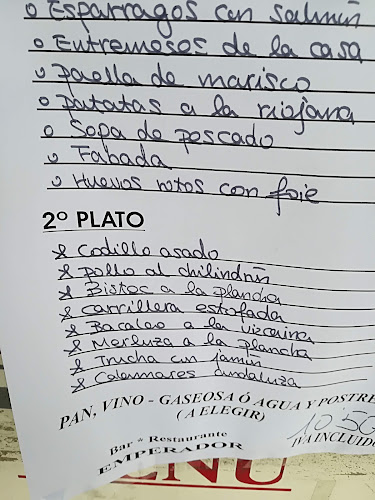 o Espárragos con salmón
o Entremeses de la casa
o paella de marisco
o patatas a la riojana
o Sopa de pescado
o Fabada
o Huevos rotos con foie
2º PLATO
& Codillo asado
& pollo al chilindrón
& Bistec a la plancha
& Carrillera estofada
& Bacalao a la vizcaina
& Merluza a la plancha
& Trucha con jamón
& Calamares andaluza
PAN, VINO - GASEOSA Ó AGUA Y POSTRE
(A ELEGIR)
10'50
IVA INCLUIDO
Bar * Restaurante
EMPERADOR
MENU